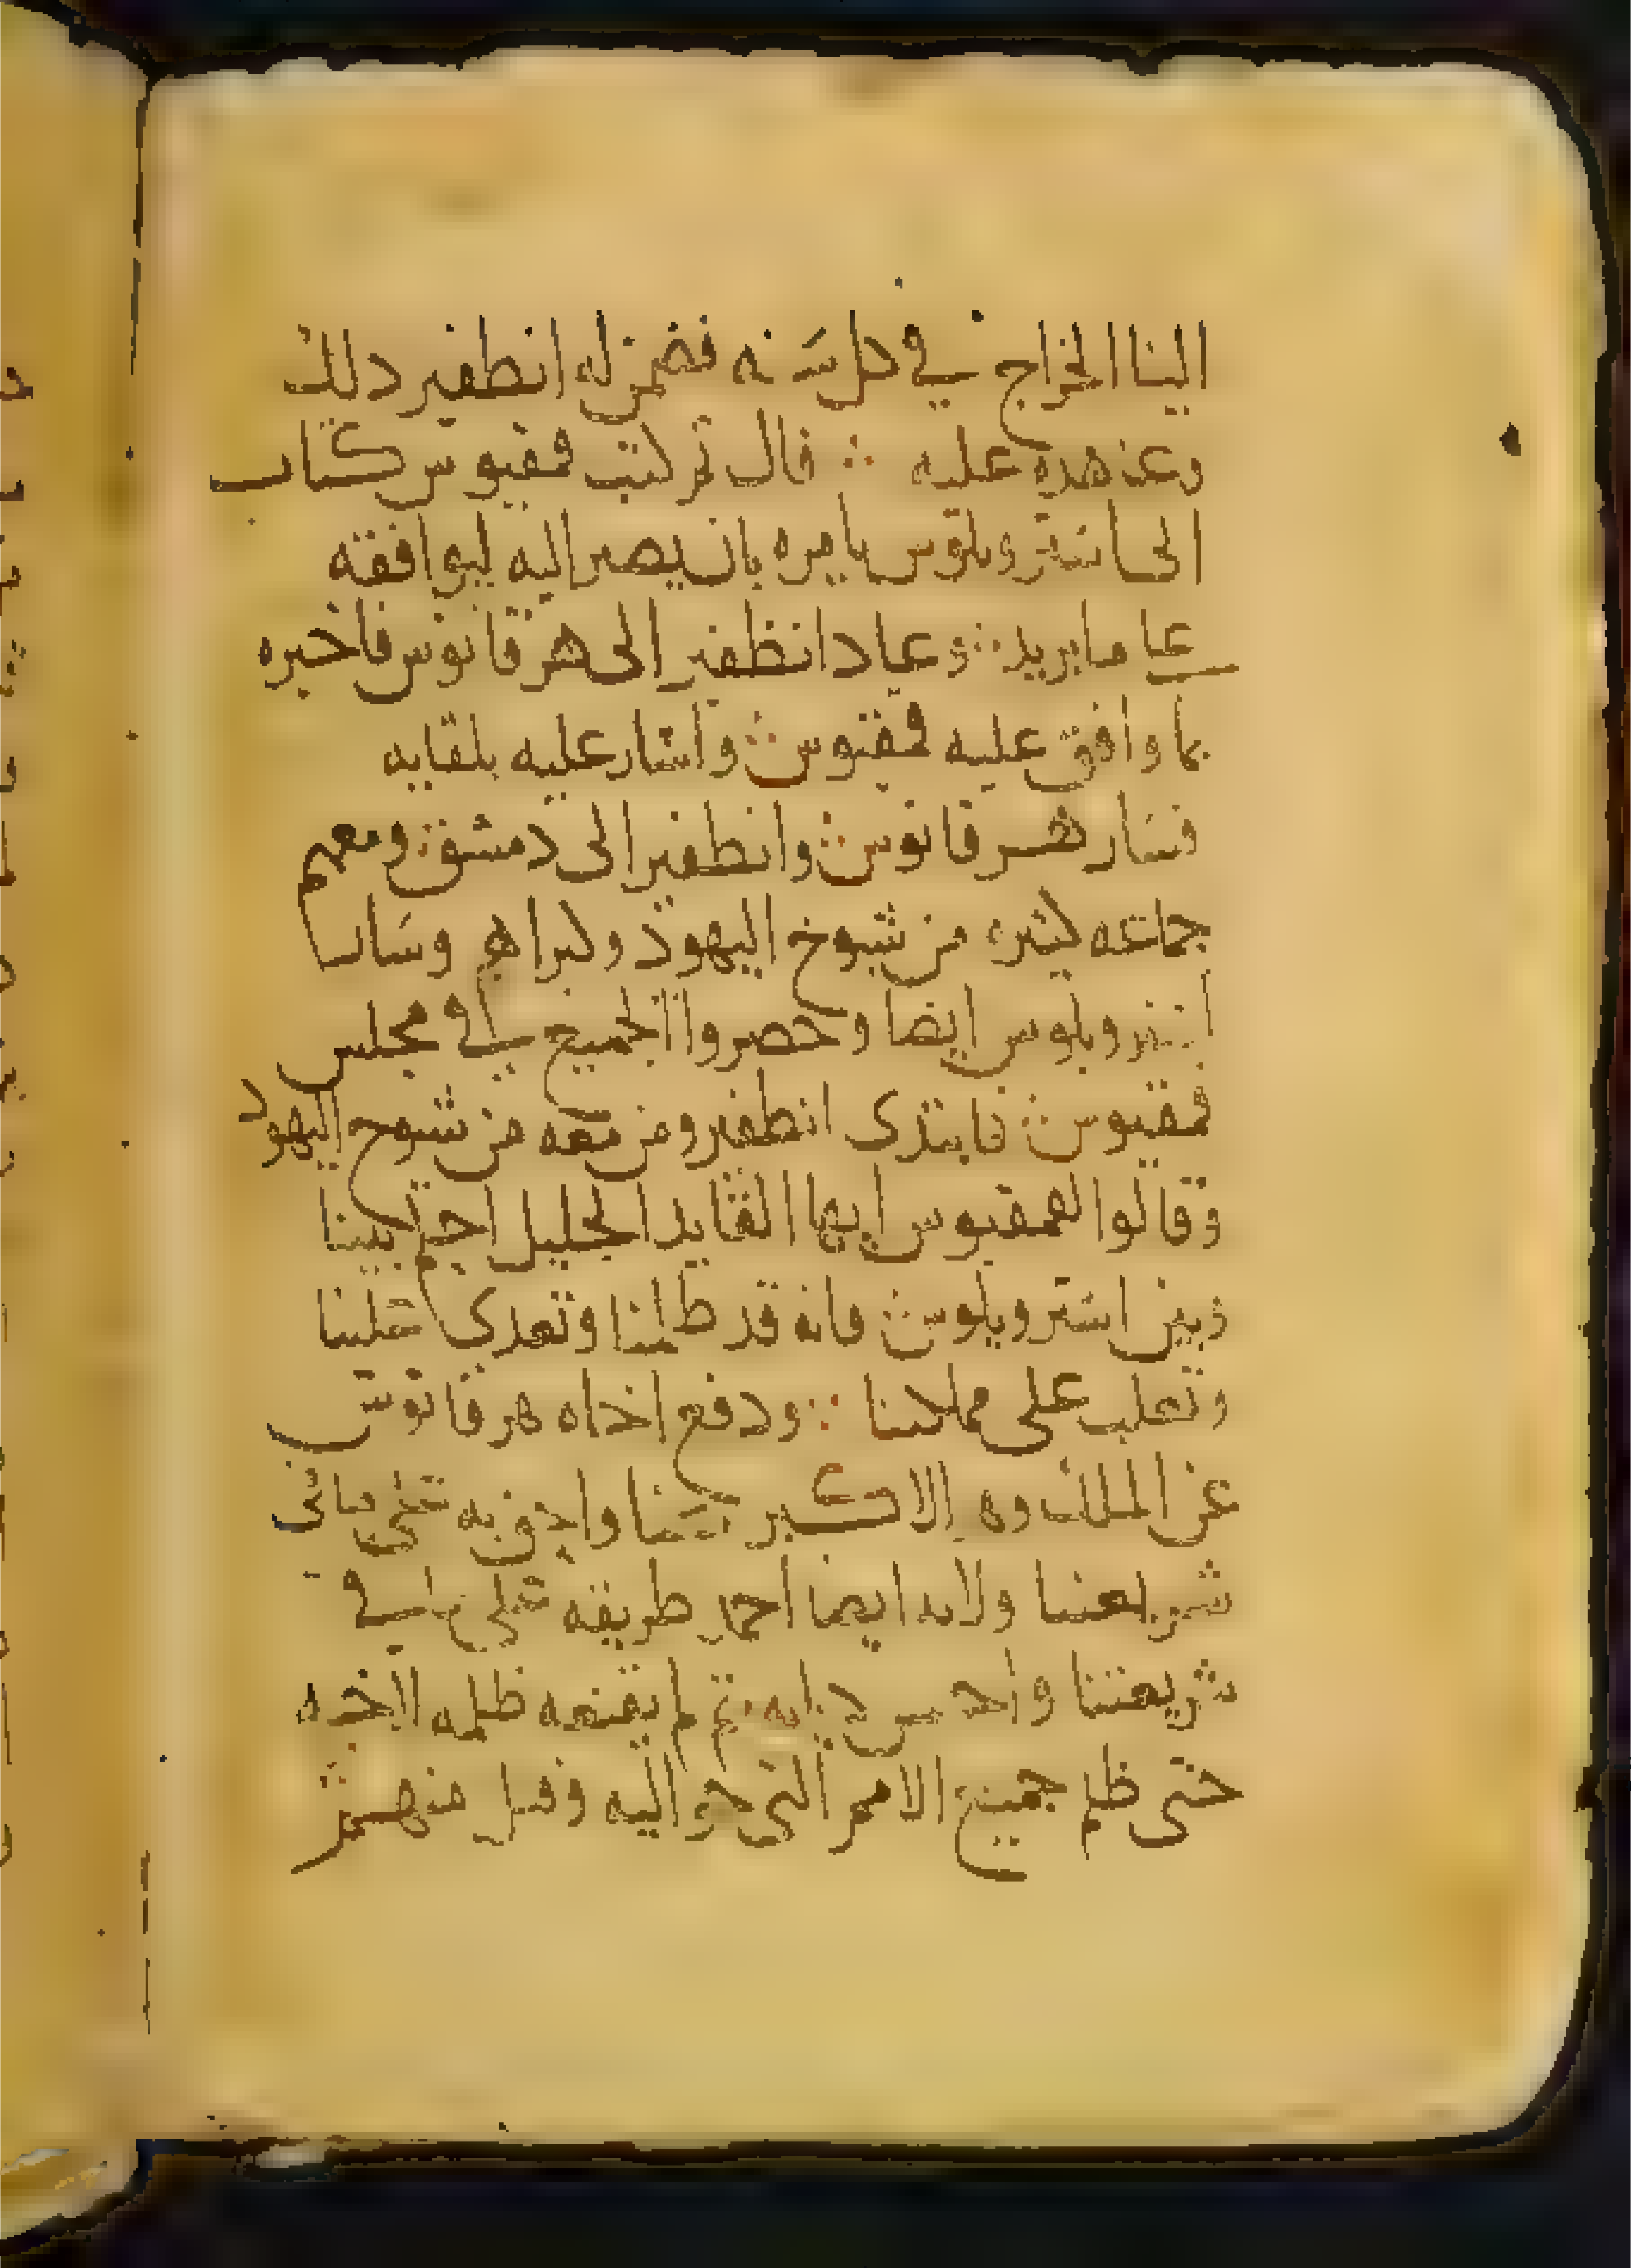 الينا الخراج في كل سنه فضمن له انطفير دلك
وعنهده عليه ∴ قال تم كتب فمقيوس كتاب
الى استروبلوس يامره بان يصير اليه ليوافقه
عا ما يريد ∴ وعاد انظفير الى هرقانوس فاخبره
بما وافق عليه فمقيوس واشار عليه بلقايه
فسار هرقانوس وانطفير الى دمشق ومعهم
جماعه كثيره من شيوخ اليهود وكبراهم وسار
استروبلوس ايضا وحضروا الجميع في مجلس
فمقيوس فابتدى انطفير ومن معه من شيوخ اليهود
وقالوا لفمقيوس ايها القايد الجليل احكم بيننا
وبين استروبلوس فانه قد ظلمنا وتعدى علينا
وتغلب على مملكتنا ∴ ودفع اخاه هرقانوس
عن الملك وهو الاكبر سنا واحق به على ما في
شريعتنا ولانه ايضا احمد طريقه على ما في
شريعتنا واحسن ديانه ∴ ثم لم يقنعه ظلمه لاخيه
حتى ظلم جميع الامم التي حواليه وقتل منهم